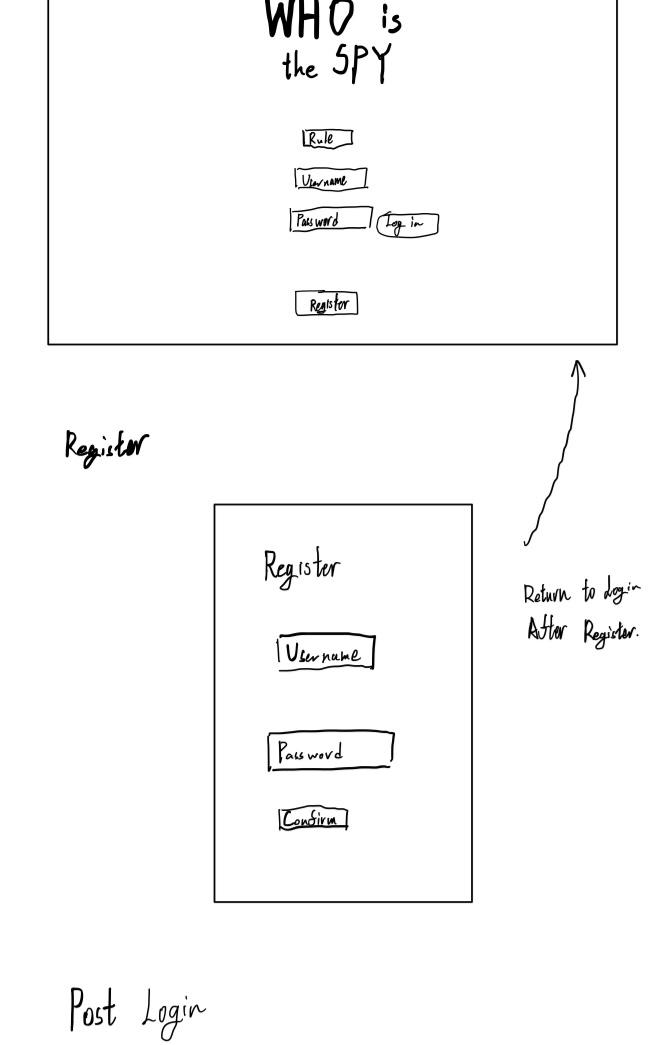 WHO is
the SPY
Rule
Username
Password
Log in
Register
Register
Register
Username
Password
Confirm
Return to Login
After Register.
Post Login